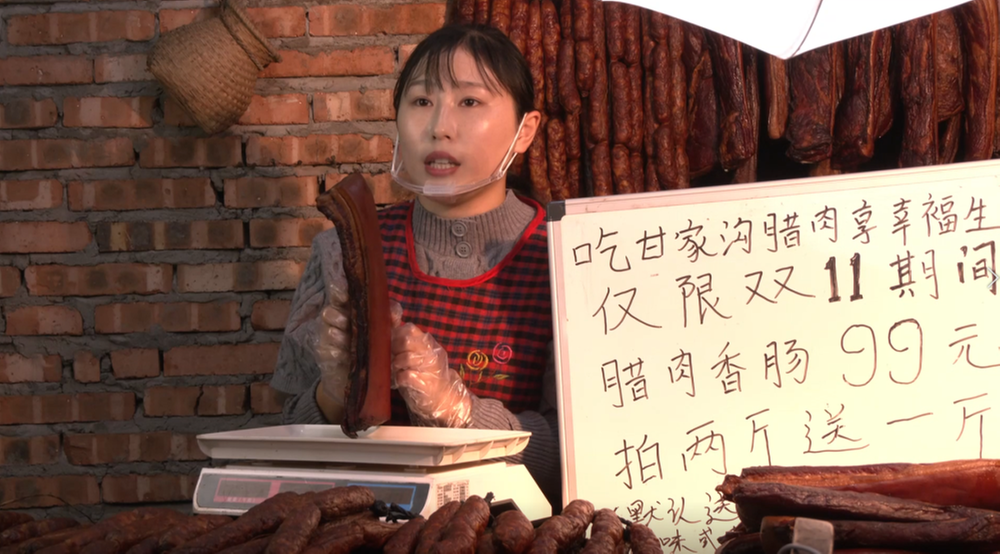 吃甘家沟腊肉享幸福生
仅限双11期间
腊肉香肠99元
拍两斤送一斤
默认送
味或